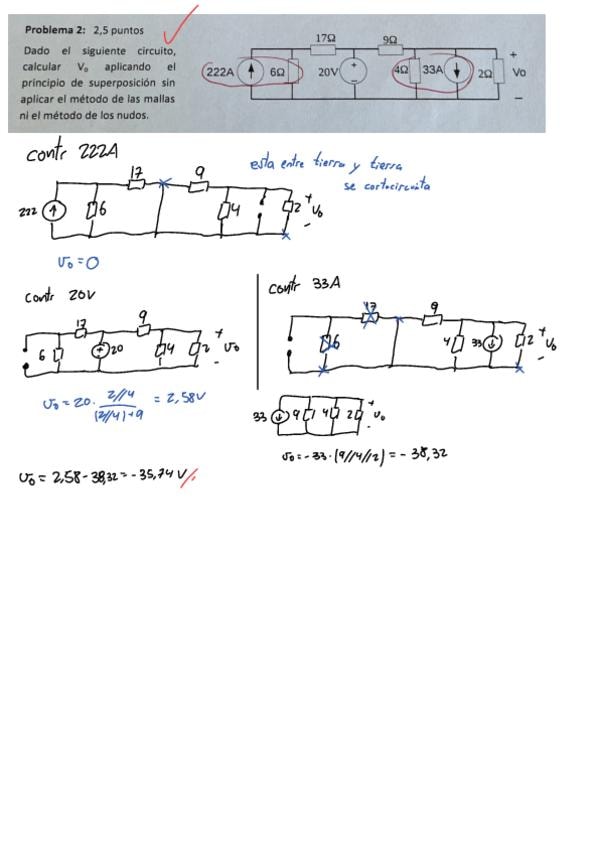 Problema 2: 2,5 puntos
Dado el siguiente circuito,
calcular Vₒ aplicando el
principio de superposición sin
aplicar el método de las mallas
ni el método de los nudos.
17Ω 9Ω
222A 6Ω 20V + - 4Ω 33A 2Ω + Vo -
contr 222A
esta entre tierra y tierra
se cortocircuita
17 9
222 6 4 2 + Vo -
Vo = 0
contr 20V
17 9
6 + 20 4 2 + Vo -
Vo = 20 · 2//4 / (2//4)+9 = 2,58V
contr 33A
17 9
6 4 33 2 + Vo -
33 9 4 2 + Vo -
Vo = -33 · (9//4//2) = - 38,32
Vo = 2,58 - 38,32 = - 35,74 V